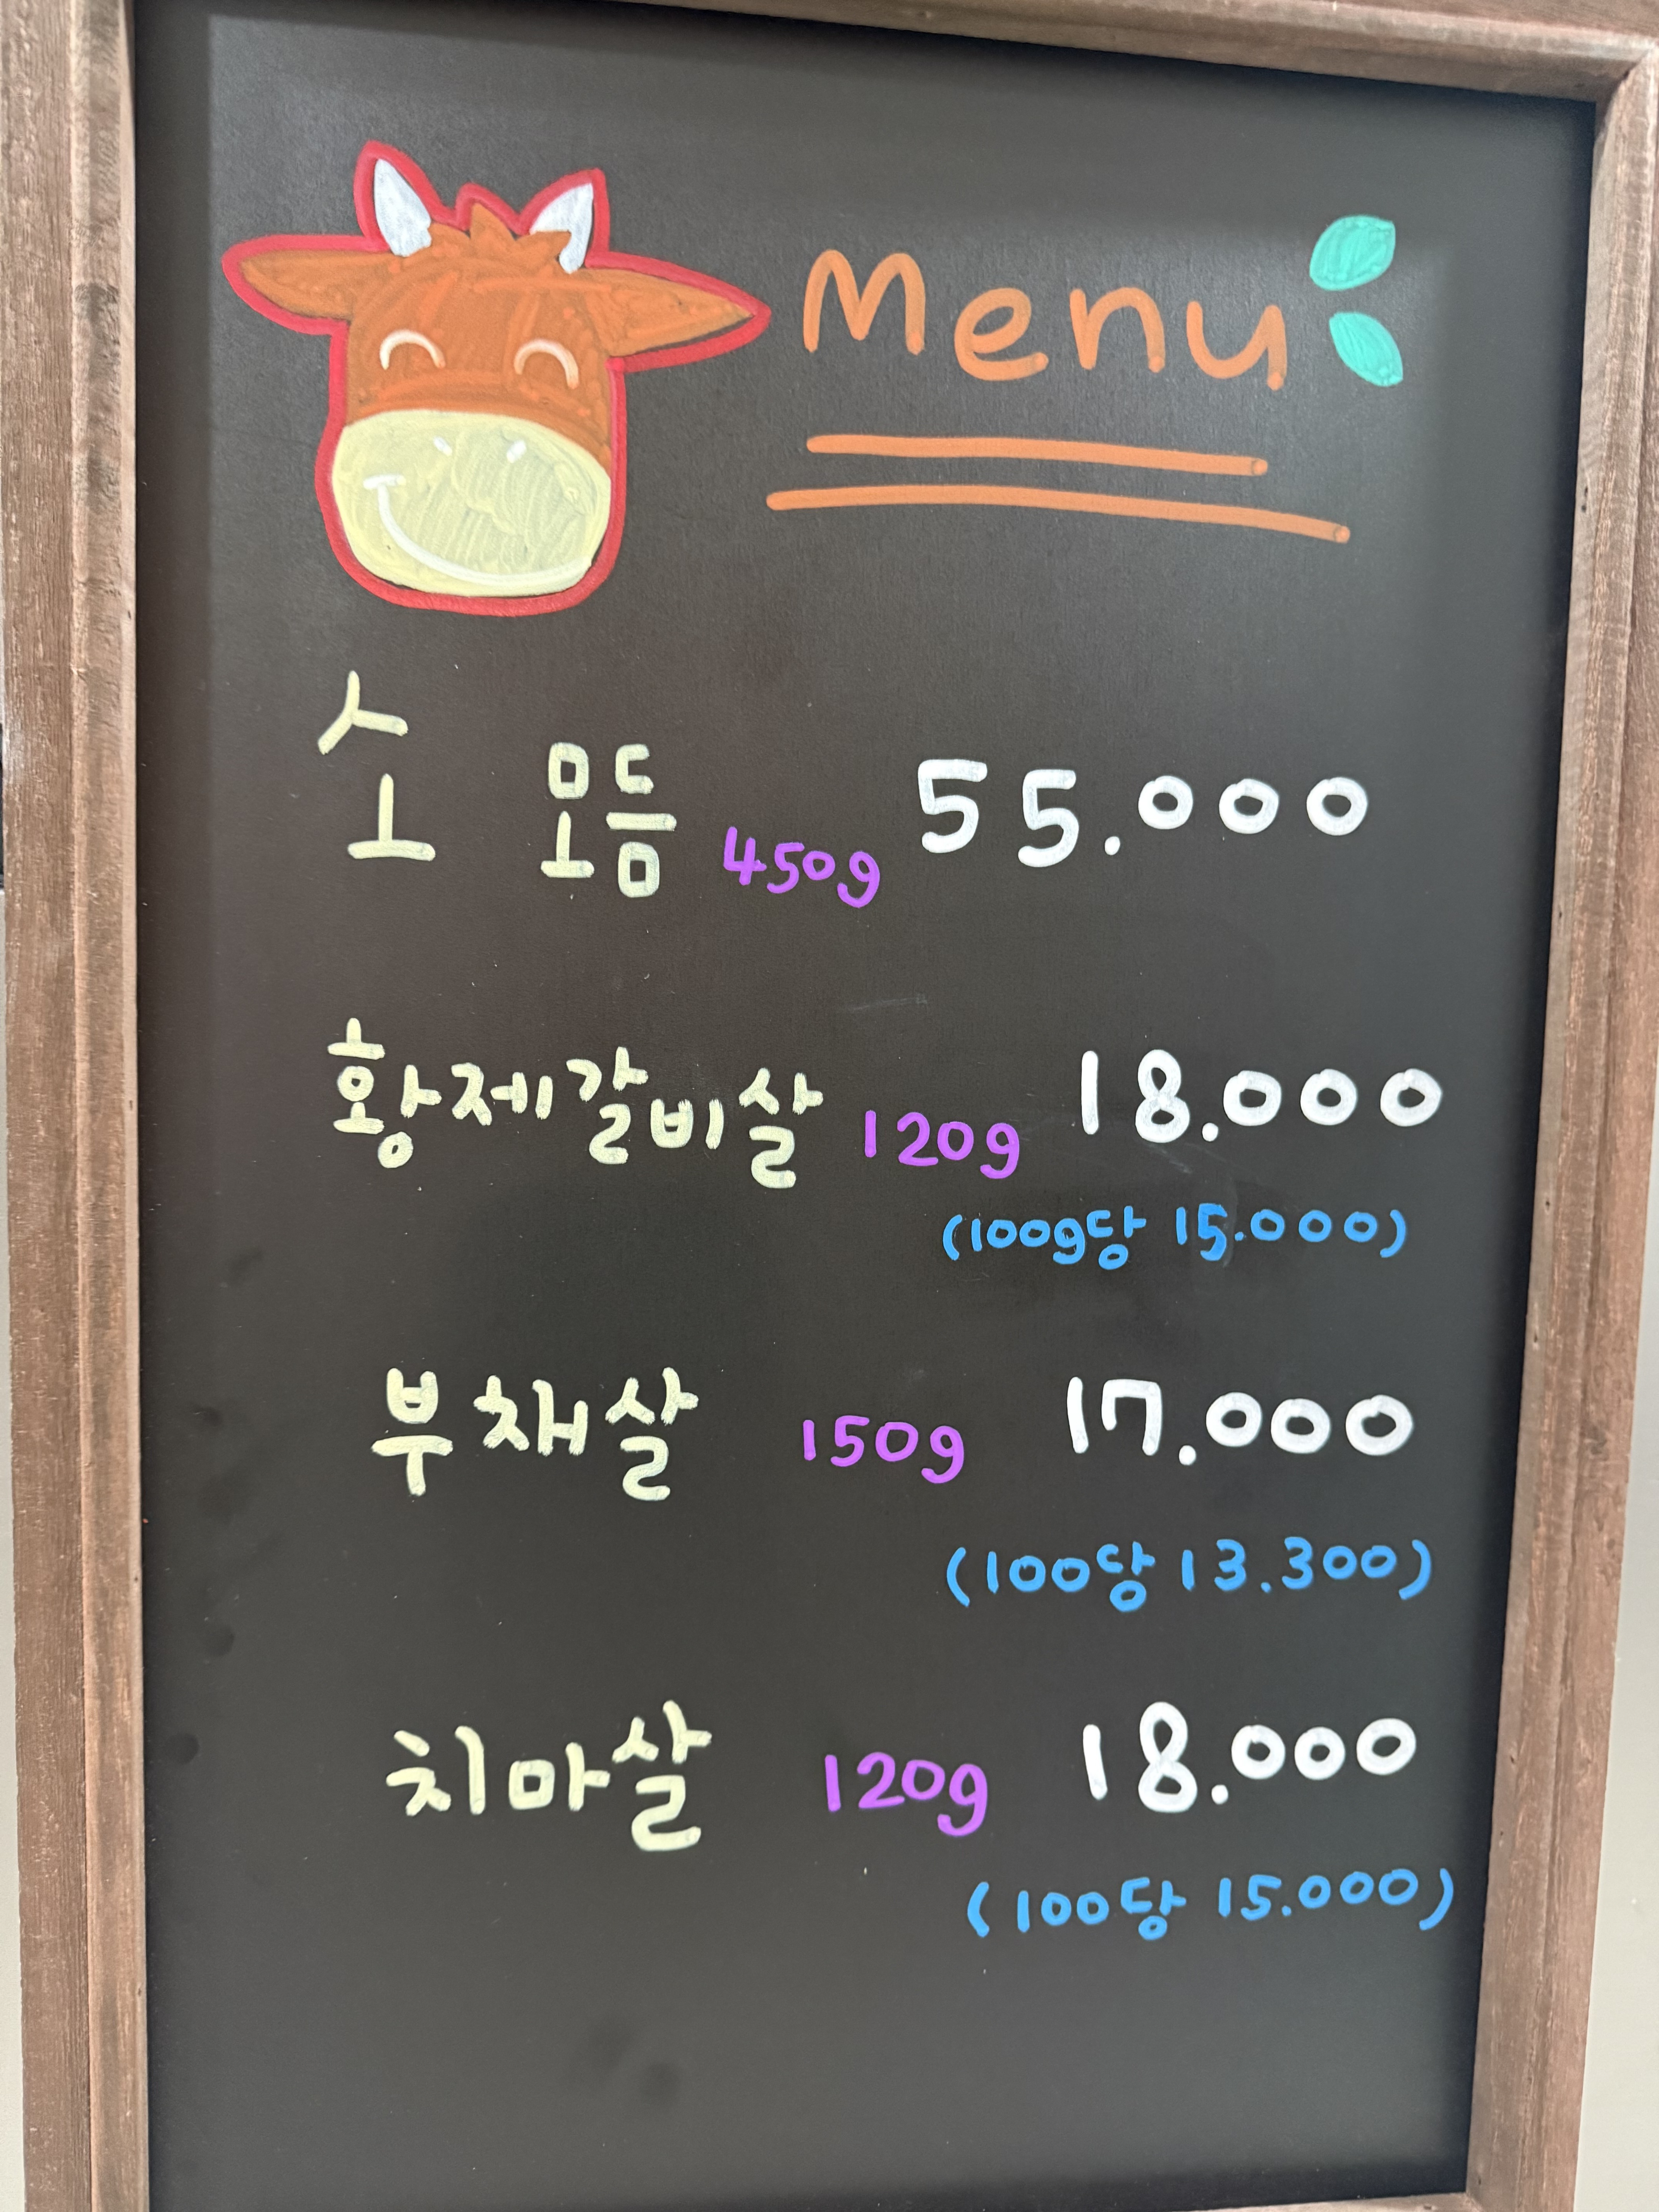 Menu
소 모듬 450g 55.000
황제갈비살 120g 18.000
(100g당 15.000)
부채살 150g 17.000
(100당 13.300)
치마살 120g 18.000
(100당 15.000)